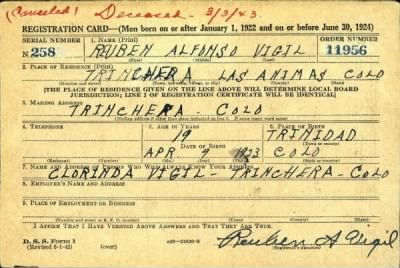 (Canceled) Deceased - 3/3/43.
REGISTRATION CARD—(Men born on or after January 1, 1922 and on or before June 30, 1924)
SERIAL NUMBER 1. NAME (Print) ORDER NUMBER
N 258 RUBEN ALFONSO VIGIL 11956
(First) (Middle) (Last)
2. PLACE OF RESIDENCE (Print)
TRINCHERA LAS ANIMAS COLO
(Number and street) (Town, township, village, or city) (County) (State)
[THE PLACE OF RESIDENCE GIVEN ON THE LINE ABOVE WILL DETERMINE LOCAL BOARD
JURISDICTION; LINE 2 OF REGISTRATION CERTIFICATE WILL BE IDENTICAL]
3. MAILING ADDRESS
TRINCHERA COLO
[Mailing address if other than place indicated on line 2. If same insert word same]
4. TELEPHONE 5. AGE IN YEARS 6. PLACE OF BIRTH
19 TRINIDAD
DATE OF BIRTH (Town or county)
APR 9 COLO
(Exchange) (Number) (Mo.) (Day) (Yr.) (State or country)
7. NAME AND ADDRESS OF PERSON WHO WILL ALWAYS KNOW YOUR ADDRESS
CLORINDA VIGIL - TRINCHERA - COLO
8. EMPLOYER'S NAME AND ADDRESS
9. PLACE OF EMPLOYMENT OR BUSINESS
(Number and street or R. F. D. number) (Town) (County) (State)
I AFFIRM THAT I HAVE VERIFIED ABOVE ANSWERS AND THAT THEY ARE TRUE.
D. S. S. Form 1
(Revised 6-1-42) (over) Reuben A Vigil
(Registrant's signature)